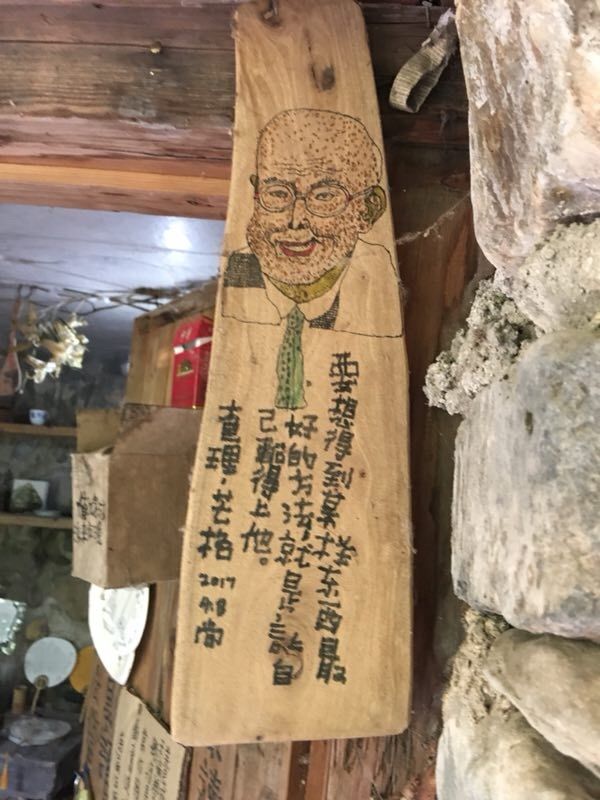 要想得到某样东西最
好的方法,就是让自
己配得上他。
查理·芒格
2017
4.8